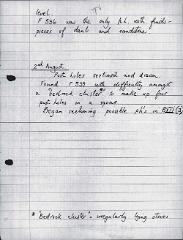 level.
F 596 was the only P.H. with finds -
pieces of daub and
2nd August.
Post holes sectioned and drawn.
Found F 599 with difficulty amongst
a "bedrock cluster"* to make up four
post holes in a square
Began sectioning possible P.H's in
* "Bedrock cluster" - irregularly lying stones